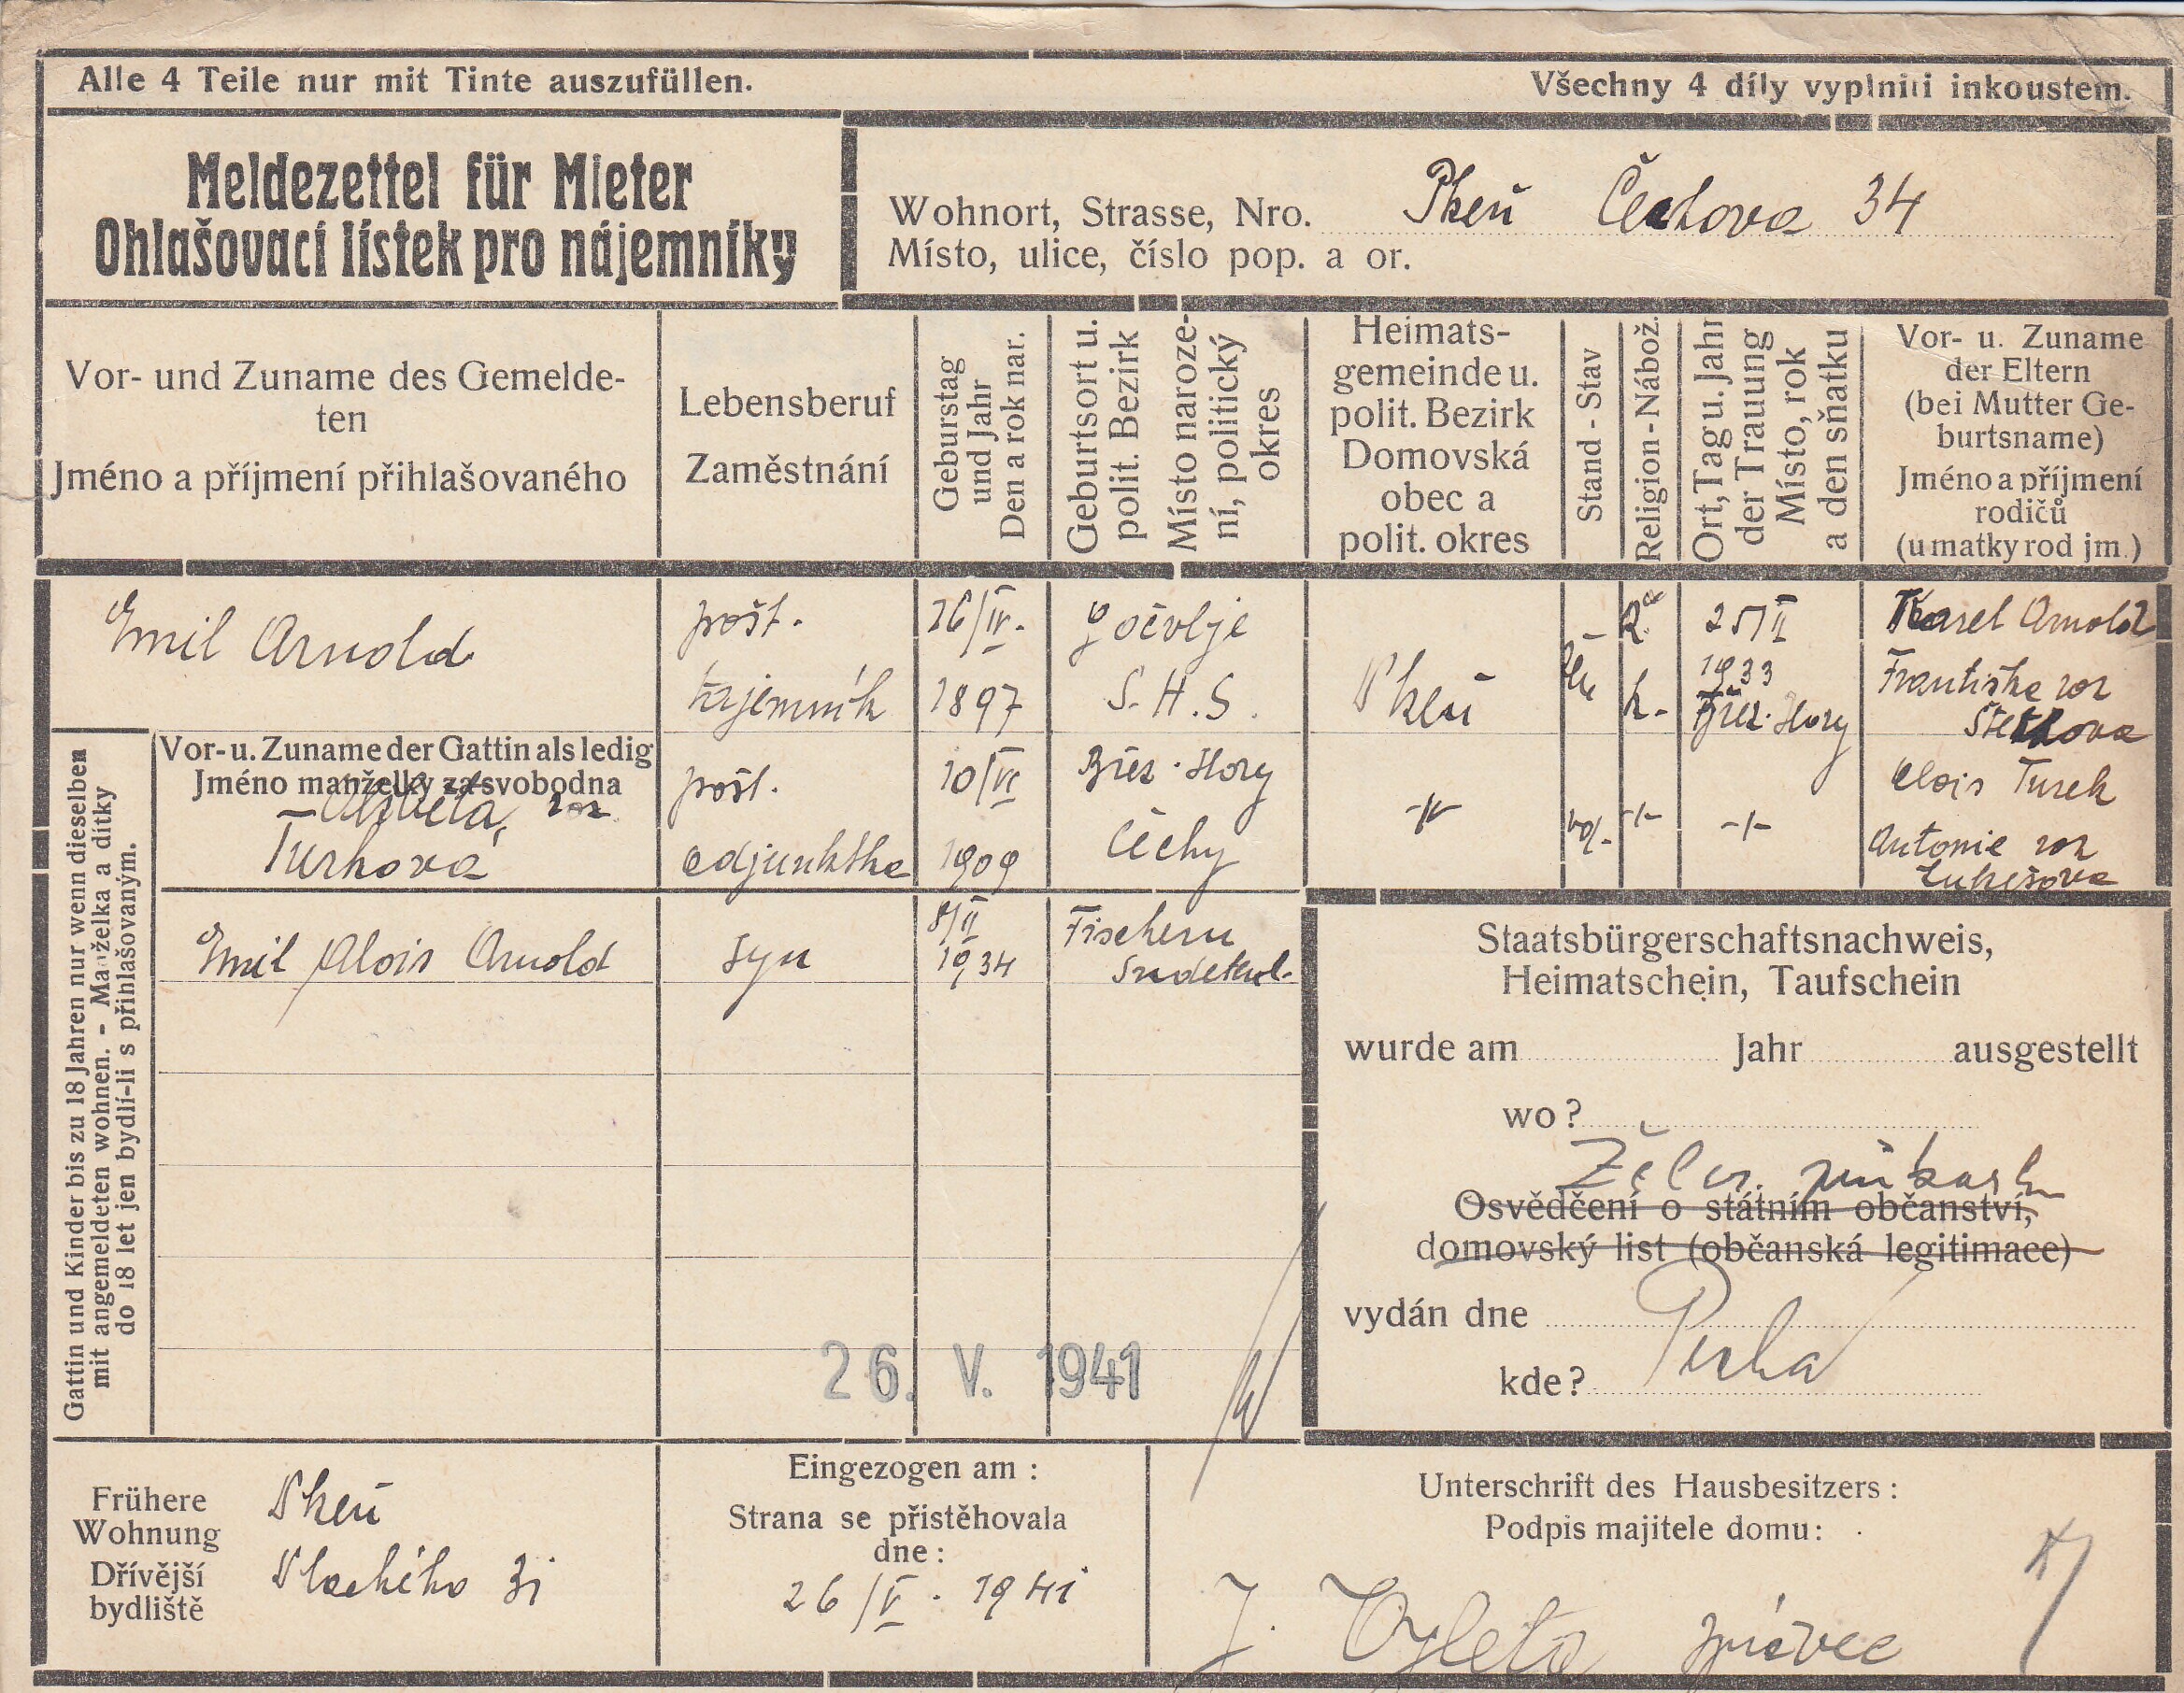 Alle 4 Teile nur mit Tinte auszufüllen.
Všechny 4 díly vyplniti inkoustem.
Meldezettel für Mieter
Ohlašovací lístek pro nájemníky
Wohnort, Strasse, Nro. Plzeň Čechova 34
Místo, ulice, číslo pop. a or.
Vor- und Zuname des Gemelde-
ten
Jméno a příjmení přihlašovaného
Lebensberuf
Zaměstnání
Geburstag
und Jahr
Den a rok nar.
Geburtsort u.
polit. Bezirk
Místo naroze-
ní, politický
okres
Heimats-
gemeinde u.
polit. Bezirk
Domovská
obec a
polit. okres
Stand - Stav
Religion - Nábož.
Ort, Tag u. Jahr
der Trauung
Místo, rok
a den sňatku
Vor- u. Zuname
der Eltern
(bei Mutter Ge-
burtsname)
Jméno a příjmení
rodičů
(u matky rod jm.)
Emil Arnold
pošt.
tajemník
26/IV.
1897
Gočvlje
S.H.S.
Plzeň
žen
25/II
1933
Břez. Hory
Karel Arnold
Františka roz
Gattin und Kinder bis zu 18 Jahren nur wenn dieselben
mit angemeldeten wohnen. - Manželka a dítky
do 18 let jen bydlí-li s přihlašovaným.
Vor- u. Zuname der Gattin als ledig
Jméno manželky za svobodna
Alžběta, roz
Turková
pošt.
adjunktka
10/VI
1909
Břez. Hory
Čechy
-"-
-"-
-"-
Alois Turek
Antonie roz
Lukešova
Emil Alois Arnold
syn
8/II
1934
Fischern
Sudetenl.
Staatsbürgerschaftsnachweis,
Heimatschein, Taufschein
wurde am Jahr ausgestellt
wo?
Osvědčení o státním občanství,
domovský list (občanská legitimace)
vydán dne
kde?
26. V. 1941
Frühere
Wohnung
Dřívější
bydliště
Plzeň
Plachého 31
Eingezogen am :
Strana se přistěhovala
dne :
26/V. 1941
Unterschrift des Hausbesitzers :
Podpis majitele domu:
J. Vyleta správce